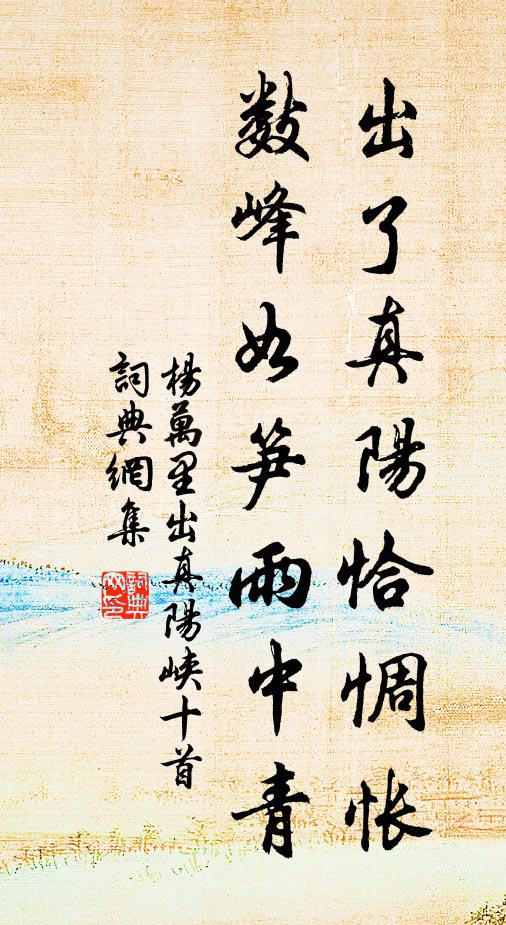 出了真陽恰惆怅
数峰如笋雨中青
楊萬里出真陽峽十首
詞典網集